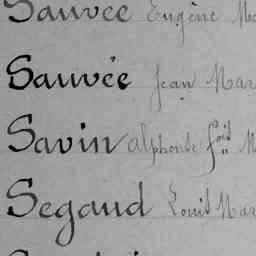 Sauvée Eugène Ma
Sauvée Jean Mar
Savin Alphonse fçois M
Segaud Louis Mar